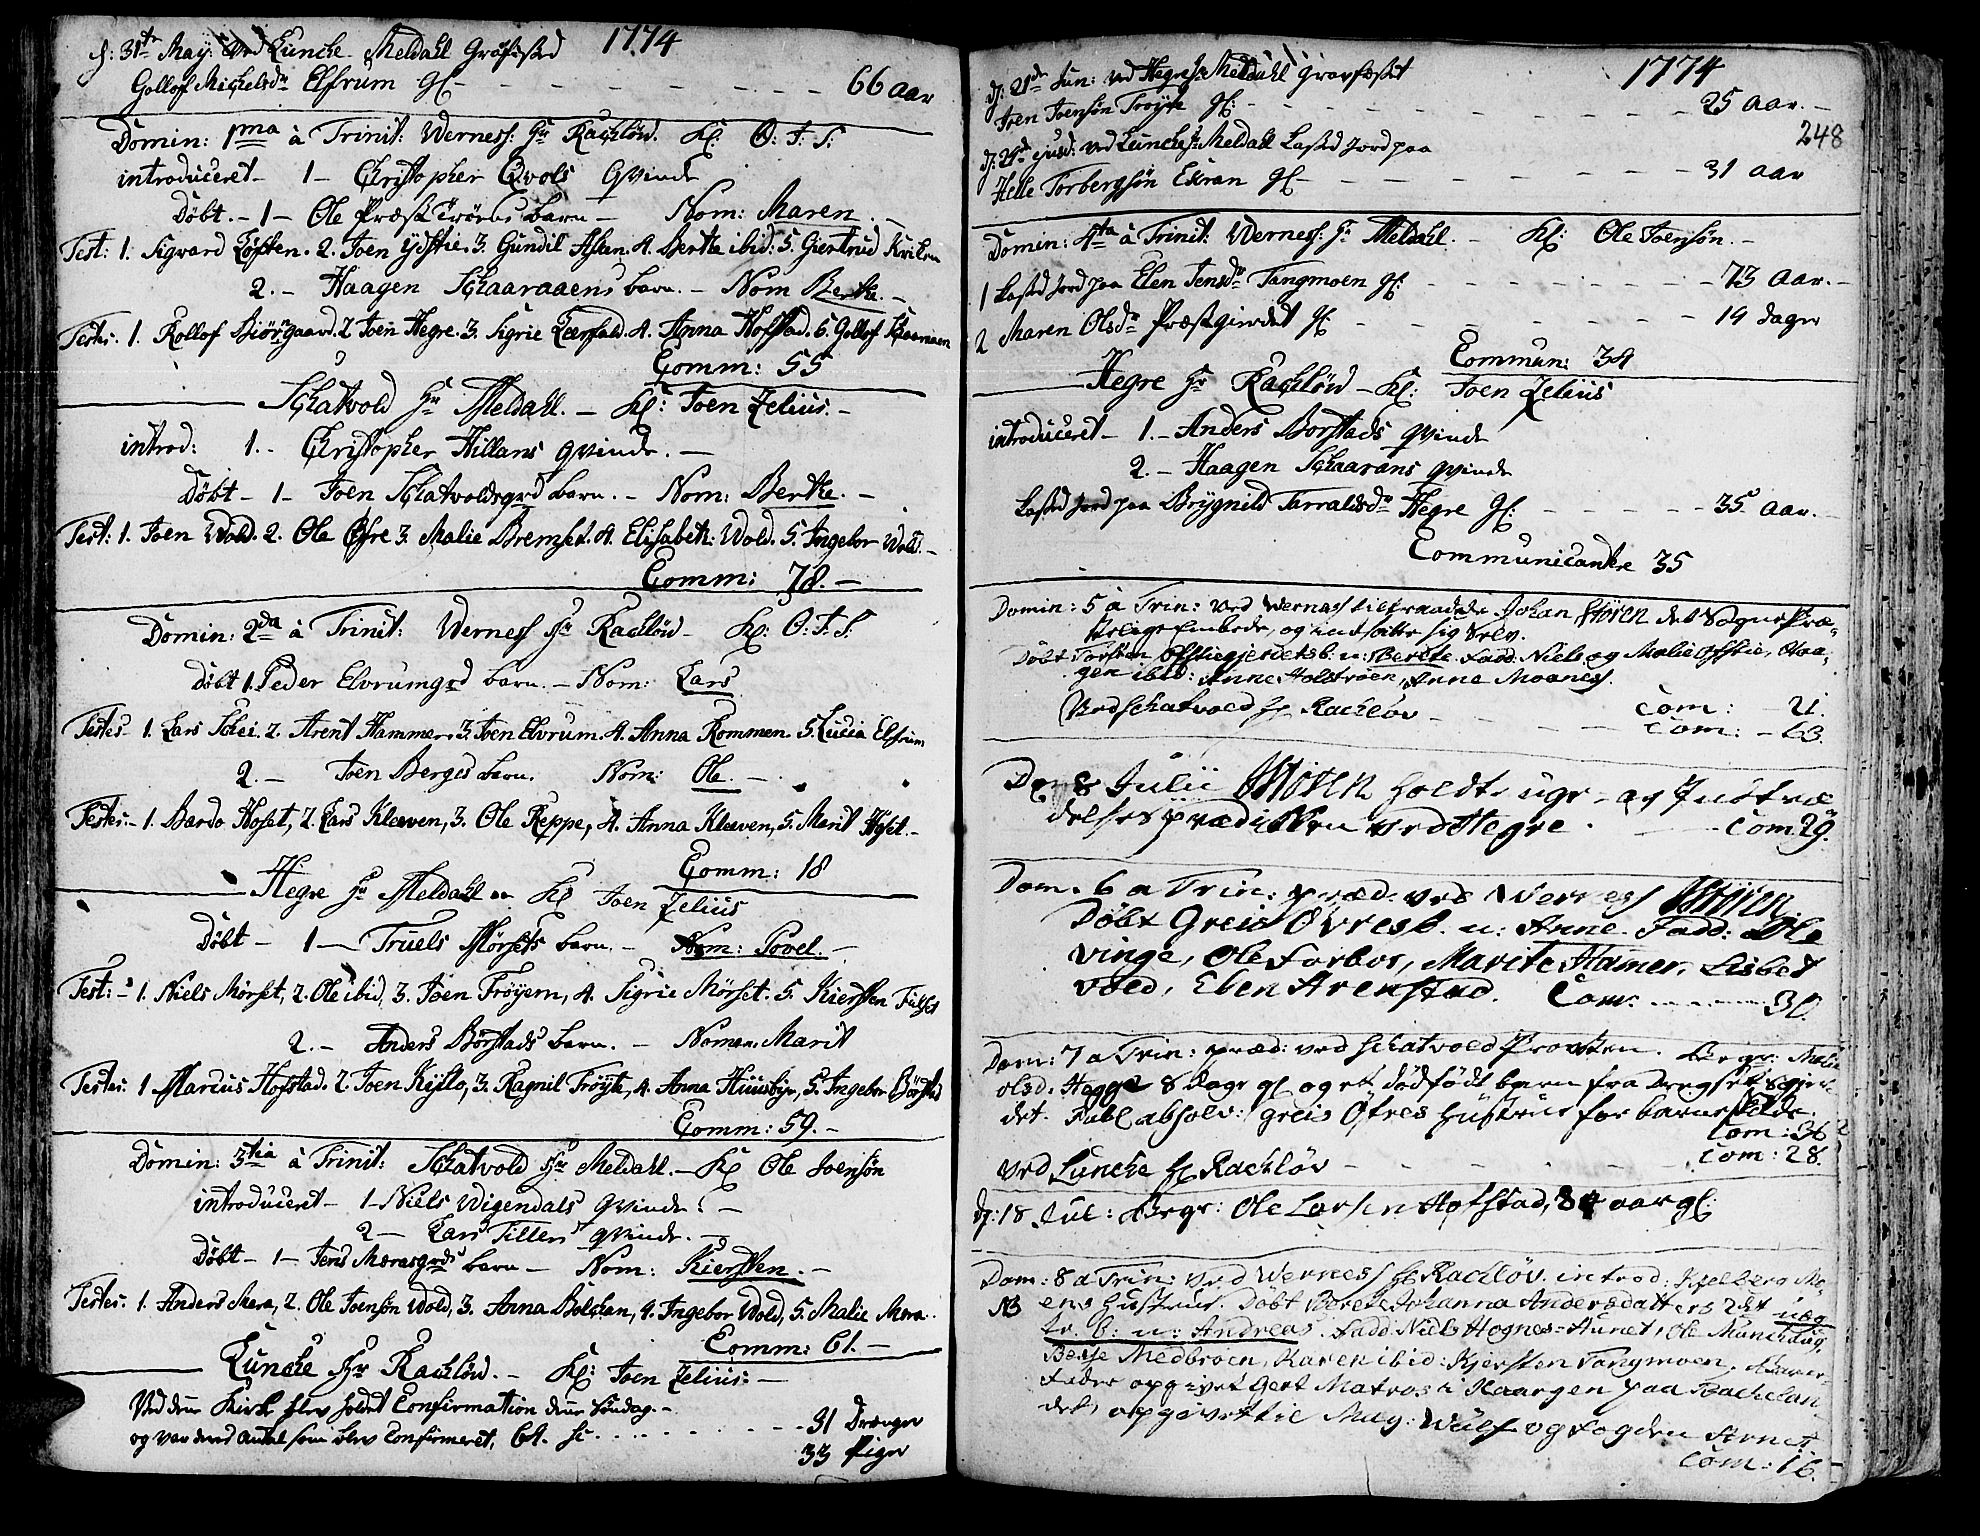 d: 31te May: Ved Luncke Meldahl Gräfæsted 1774
Gollof Michelsdr Elfrum gl - - - 66 aar
Domin: 1ma à Trinit: Werness: Hr Rachlöw. Kl: O. J. S.
introduceret - 1 - Christopher Qvols Qvinde
Döbt. - 1 - Ole Præst barn - Nom: Maren. -
Test: 1. Sigvard Löften. 2. Joen ydstie. 3. Gundil Alstan. 4. Berta ibid: 5. Giertrud
2. - Haagen Schaaraaens barn. - Nom Berthe. -
Testes: 1. Rollof Biörngaard. 2 Joen Hegre. 3. Sigrie Leerfald. 4. Anna Hofstad. 5 Gollof
Comm: 55
Schatvold Hr Meldahl. - Kl: Joen Zelius. -
introd: 1. - Christopher Hillans qvinde. -
Döbt - 1 - Joen Schatvoldsgrd barn. - Nom: Berthe. -
Test: 1. Joen Wold. 2. Ole Øfre 3. Malie Bremset. 4. Elisabeth: Wold. 5. Ingebor Wold. -
Comm: 78. -
Domin: 2da à Trinit: Werness Hr Rachlöw - Kl: O. J. S.
döbt 1. Peder Elvrumgrd barn. - Nom: Lars
Testes - 1. Lars Schei. 2. Arent Hammer. 3. Joen Elvrum. 4. Anna Rommen. 5. Lucia Elfrum
2. - Joen Berges barn. Nom: Ole. -
Testes: - 1. Bardo Hoset, 2. Lars Kleeven, 3. Ole Reppe, 4. Anna Kleeven, 5. Marit Hoset. -
Comm: 18
Hegre Hr Meldahl - Kl Joen Zelius
Döbt - 1 - Truels Mörsets barn. - Nom: Povel. -
Test: - 1. Niels Mörset, 2. Ole ibid, 3. Joen Tröyern, 4. Sigrie Mörset. 5. Kiersten
2. - Anders Börstads barn. - Nomen: Marit
Testes: 1. Marcus Hofstad. 2. Joen Kysto, 3. Ragnil Tröyte, 4. Anna Huusbye, 5. Ingebor Börstad
Comm: 59. -
Domin: 3tia à Trinit: Schatvold Hr Meldahl. - Kl Ole Joensön
introduceret - 1 - Niels Wigendals qvinde: -
2 - Lars Tillers qvinde. -
Döbt - 1 - Jens Meraasgrds barn - Nom: Kiersten. -
Testes: 1. Anders Mera, 2. Ole Joensön Wold, 3. Anna Bolchan, 4. Ingebor Wold, 5. Malie Mera.
Comm: 61. -
Luncke Hr Rachlöw. - Kl: Joen Zelius: -
Ved denne Kirke blev holdet Confirmation denne Söndag. -
og var deres antal som blev Confirmeret, 64. - - - 31 Drænger
33 Piger
d: 21de Jun: ved Hegre Hr Meldahl Gravfæstet 1774
Iven Joensön Tröyte gl: - - - 25 aar. -
248
d: 29de ejusd: ved Luncke Hr Meldahl Kasted jord paa
Helle Torbergsön Ekran gl - - - 31 aar
Domin: 4ta à Trinit: Werness: Hr Meldahl. - Kl: Ole Joensön. -
1 Kasted jord paa Elen Jensdr Tangmoen gl: - - - 73 aar. -
2 Maren Olsdr Præstgierdet gl - - - 19 dager
Commun: 34
Hegre Hr Rachlöw - Kl: Joen Zelius
introduceret - 1. - Anders Borstads qvinde
2. - Haagen Schaarans qvinde
Kasted jord paa Brygnild Tarraldsdr Hegre gl: - - - 35 aar. -
Communicantere 35
Domin: 5 a Trin: ved Werness tiltraadde Johan Stören det Sognepræ-
stelige Embede, og indsatte sig Selv.
Döbt Torsten Ofstiegjerdets b. n: Berete. Fadd: Niels og Malie Ofstie, Haa-
gen ibid: Anne Holstrøen, Anne Moanes.
com: - 21.
Ved Schatvold Hr Rachlöv - - - Com: - 63.
D. 8 Julii Stören holdte ugr - og Indtræ
delsesprædiken ved Hegre. - - - Com. 29.
Dom. 6 a Trin: præd. ved Werness Stören
Döbt Greis Öivres b. n: Anne. Fadd: Ole
Vinge, Ole Forbor, Marite Hamer, Lisbet
Vold, Eben Arenstad. Com: - - - 30.
Dom: 7 a Trin: præd: ved Schatvold Provsten. Begr: Malie
olsd. Hegge 8 dage gl og et dödfödt barn fra Dregset
det. Publ absolv: Greis Öfres Hustrue for barnefödde.
Com: 36
Ved Luncke Hr Rachlöv - - - Com: 28.
d: 18 Jul: Begr: Ole Larsen Hofstad, 84 aar gl:
Dom: 8 a Trin: ved Werness Hr Rachlöv. introd: Kjelberg Mo-
ens Hustrue. Döbt Berete Johanna Andersdatters 2det uæg
NB te. b: n: Andreas. Fadd: Niels Hognes-Aunet, Ole Munchaug,
Berse Medbröen, Karen ibid: Kjersten Tangmoen. Barne
fader opgivet Gert Matros i Kaargen paa Bachelan-
det, opgivet til Mag: Wulf og Fogden Arnet
Com: 16.